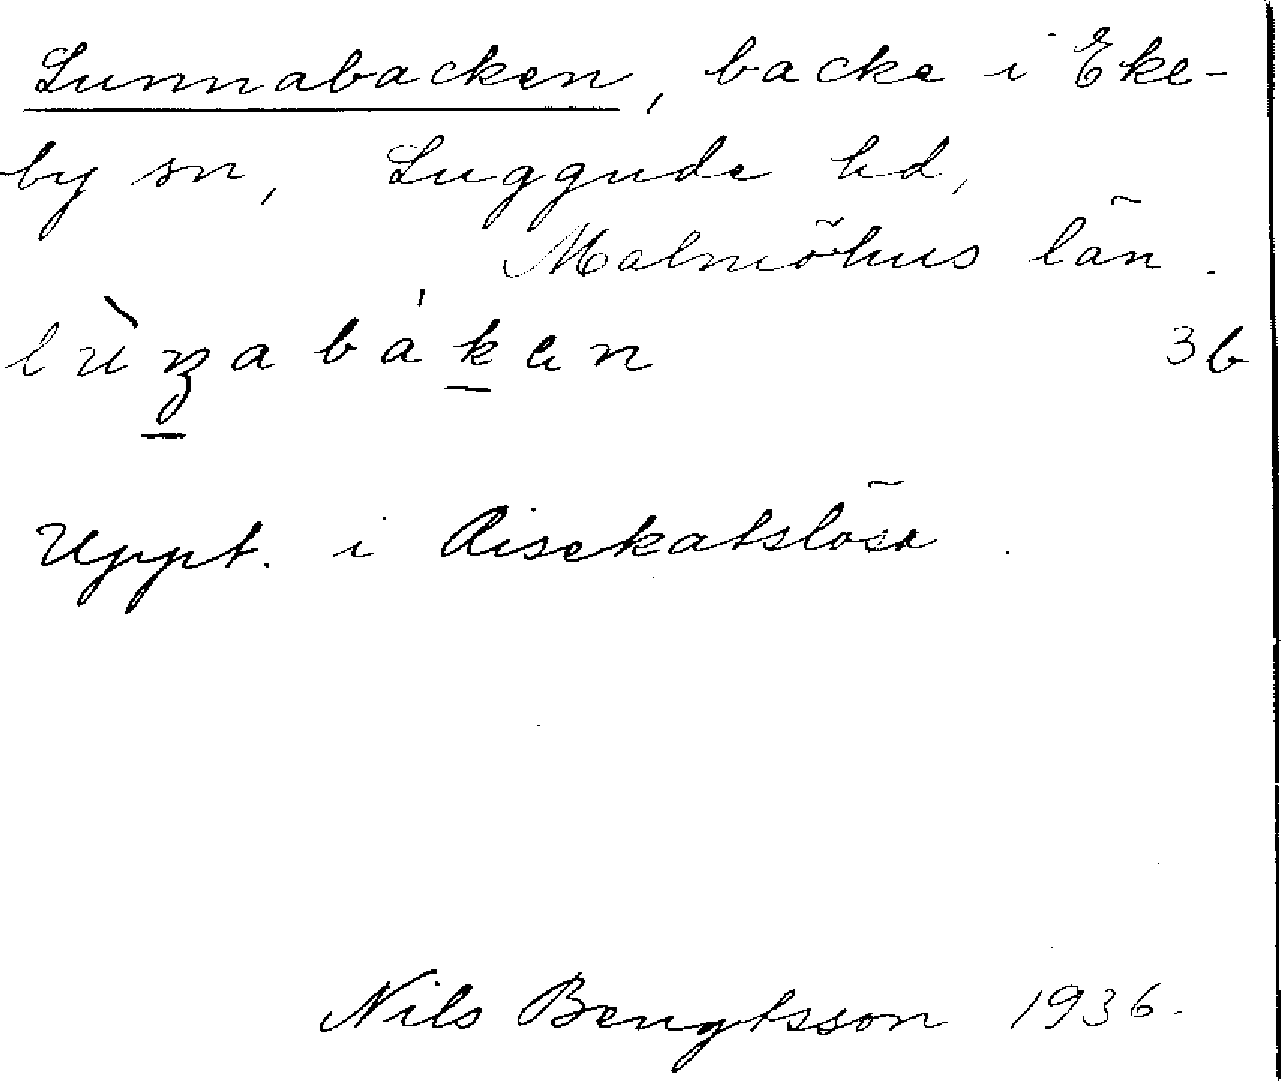 Lunnabacken, backe i Eke-
by sn, Luggude hd,
Malmöhus län.
3b
Uppt. i Risekatslösa.
Nils Bengtsson 1936.